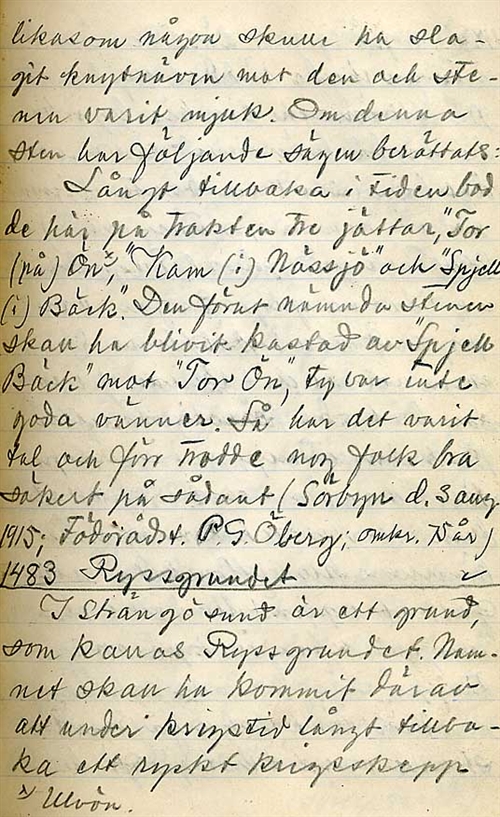 likasom någon skulle ha sla-
git knytnäven mot den och ste-
nen varit mjuk. Om denna
sten har följande sägen berättats:
Långt tillbaka i tiden bod
de här på trakten tre jättar, "Tor
(på) Ön x)", "Kam (i) Nässjö" och "Spjell
(i) Bäck". Den förut nämnda stenen
skall ha blivit kastad av "Spjell
Bäck" mot "Tor Ön", ty var inte
goda vänner. Så har det varit
tal och förr trodde nog folk bra
säkert på sådant (Sörbyn d. 3 aug.
1915; Födorådst. P. G. Öberg; omkr. 75 år)
1483 Ryssgrundet
I Strängö sund är ett grund,
som kallas Ryssgrundet. Nam-
net skall ha kommit därav
att under krigstid långt tillba-
ka ett ryskt krigsskepp
x) Ulvön.